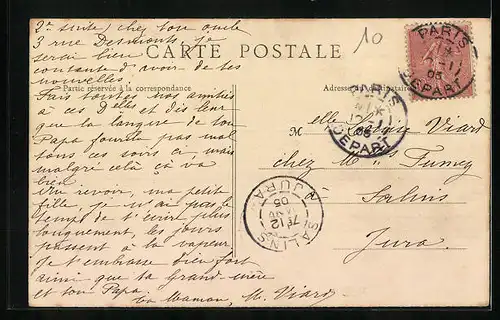 2me suite) chez ton oncle
3 rue Desmonts je
serai bien
contente d'avoir de tes
nouvelles.
Fais toutes nos amitiés
à ces Delles et dis leur
que la langue de ton
Papa fourche pas mal
tous ces soirs ci mais
malgré celà ça va
bien
Au revoir, ma petite
fille, je n'ai pas le
temps de t'écrire plus
longuement, les jours
passent à la vapeur
Je t'embrasse bien fort
ainsi que ta Grand-mère
et ton Papa.
ta Maman, M. Viard
CARTE POSTALE
Partie réservée à la correspondance
Adresse du destinataire
10
M elle Viard
chez Mlles Fumey
Salins
Jura
PARIS
DEPART
PARIS
DEPART
SALINS
JURA
7E 12
05